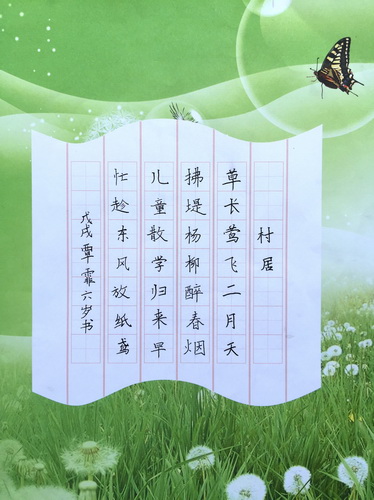 村居
草长莺飞二月天
拂堤杨柳醉春烟
儿童散学归来早
忙趁东风放纸鸢
戊戌覃霏六岁书